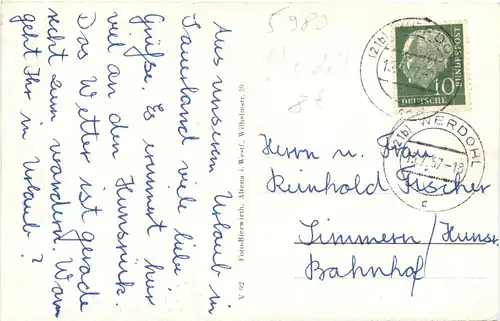 Aus unserem Urlaub in
Sauerland viele liebe
Grüße. Es erinnert hier
viel an den Hunsrück.
Das Wetter ist gerade
recht zum wandern. Wann
geht Ihr in Urlaub?
Foto-Bierwirth, Altena i. Westf., Wilhelmstr. 39
26 A
5980
8f
(21b) WERDOHL
DEUTSCHE BUNDESPOST
10
(21b) WERDOHL
c
Herrn u. Frau
Reinhold Fischer
Simmern/Hunsr.
Bahnhof